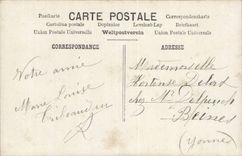 CARTE POSTALE
Postkarte
Postcard
Correspondenzkarte
Cartolina postale
Dopisnice
Levelező-Lap
Briefkaart
Union Postale Universelle
Weltpostverein
Union Postale Universelle
CORRESPONDANCE
ADRESSE
Votre amie
Marie Louise
Mademoiselle
Hortense
chez Mr
(Yonne)